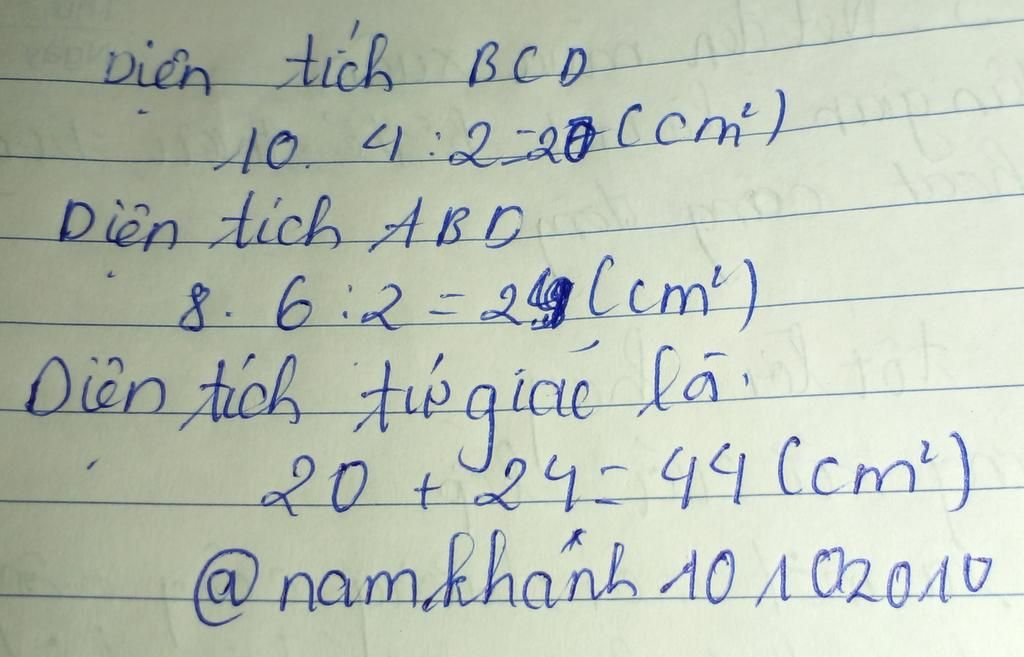 Diện tích BCD
10. 4 : 2 = 20 (cm²)
Diện tích ABD
8. 6 : 2 = 24 (cm²)
Diện tích tứ giác là.
20 + 24 = 44 (cm²)
@namkhánh10102010